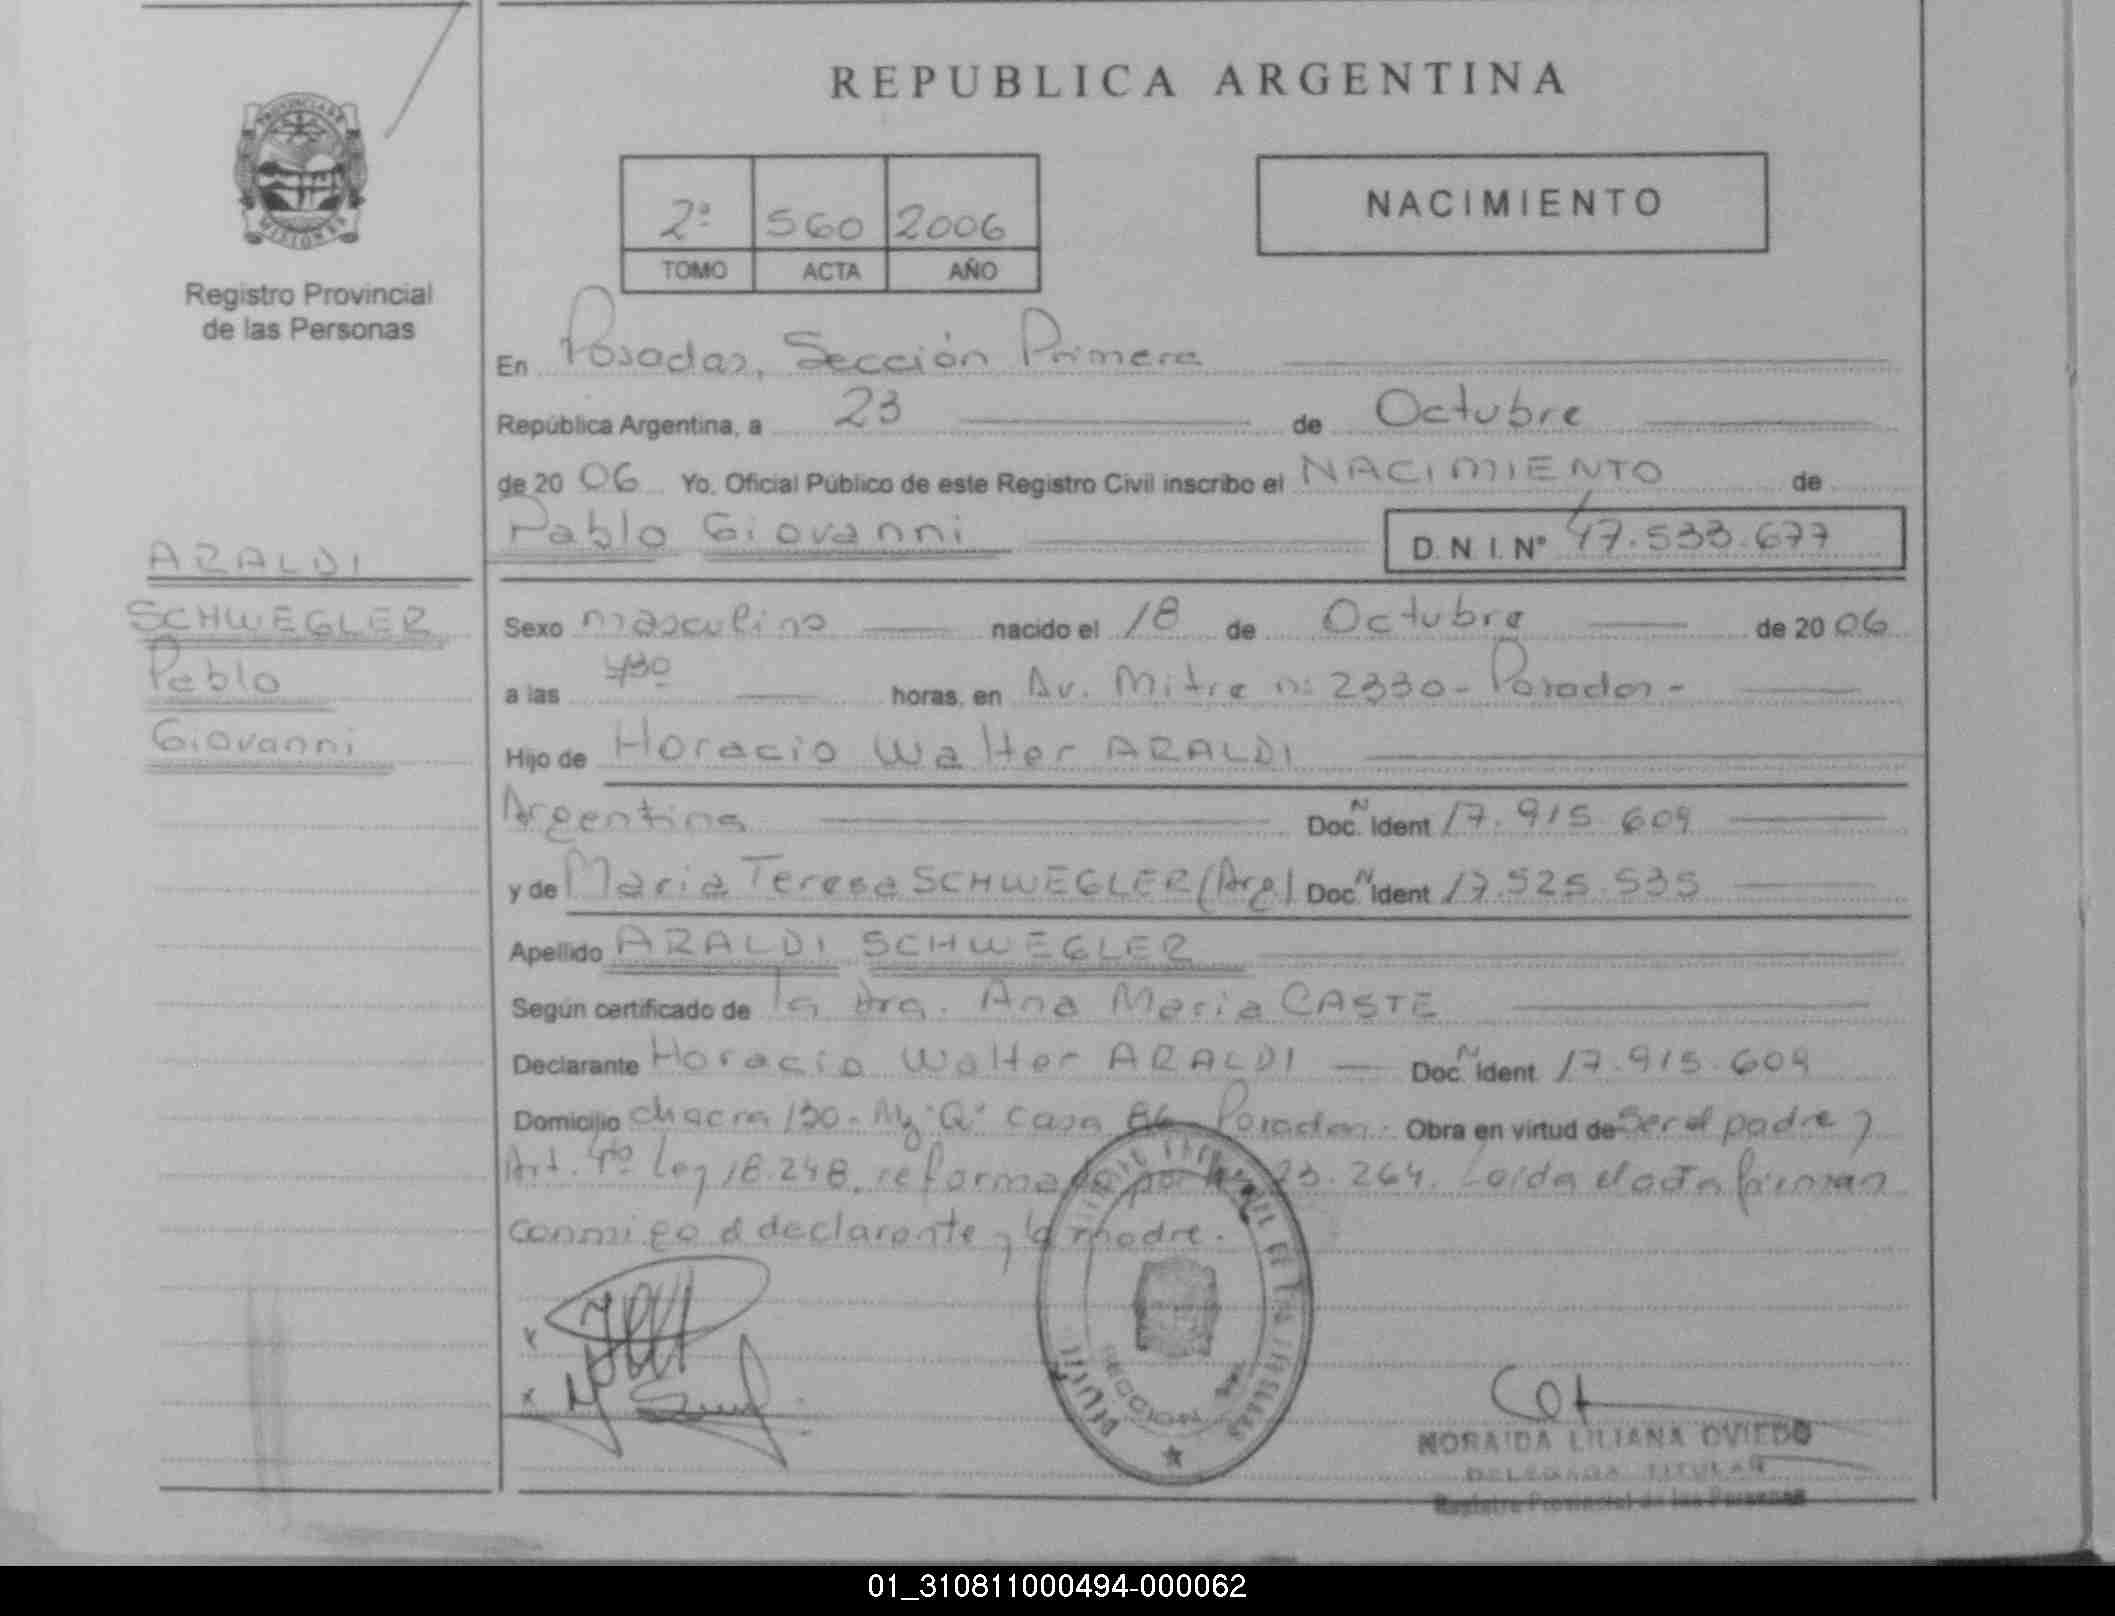 REPUBLICA ARGENTINA
PROVINCIA DE
MISIONES
Registro Provincial
de las Personas
2º 560 2006
TOMO ACTA AÑO
NACIMIENTO
En Posadas, Sección Primera
República Argentina, a 23 de Octubre
de 20 06 Yo, Oficial Público de este Registro Civil inscribo el NACIMIENTO de
Pablo Giovanni
D.N.I. Nº 47.533.677
ARALDI
SCHWEGLER
Pablo
Giovanni
Sexo masculino nacido el 18 de Octubre de 20 06
a las 730 horas, en Av. Mitre nº 2330 - Posadas -
Hijo de Horacio Walter ARALDI
Argentina Doc. N Ident 17.915.609
y de Maria Teresa SCHWEGLER (Arg) Doc. N Ident 17.525.535
Apellido ARALDI SCHWEGLER
Según certificado de la Dra. Ana Maria CASTE
Declarante Horacio Walter ARALDI Doc. N Ident 17.915.609
Domicilio chacra 130 - Mz "Q" casa 86 Posadas. Obra en virtud de ser el padre y
Art. 4to Ley 18.248, reformada por 23.264. Leída el acta firman
conmigo el declarante y la madre.
SECCION
NORAIDA LILIANA OVIEDO
DELEGADA TITULAR
Registro Provincial de las Personas
01_310811000494-000062